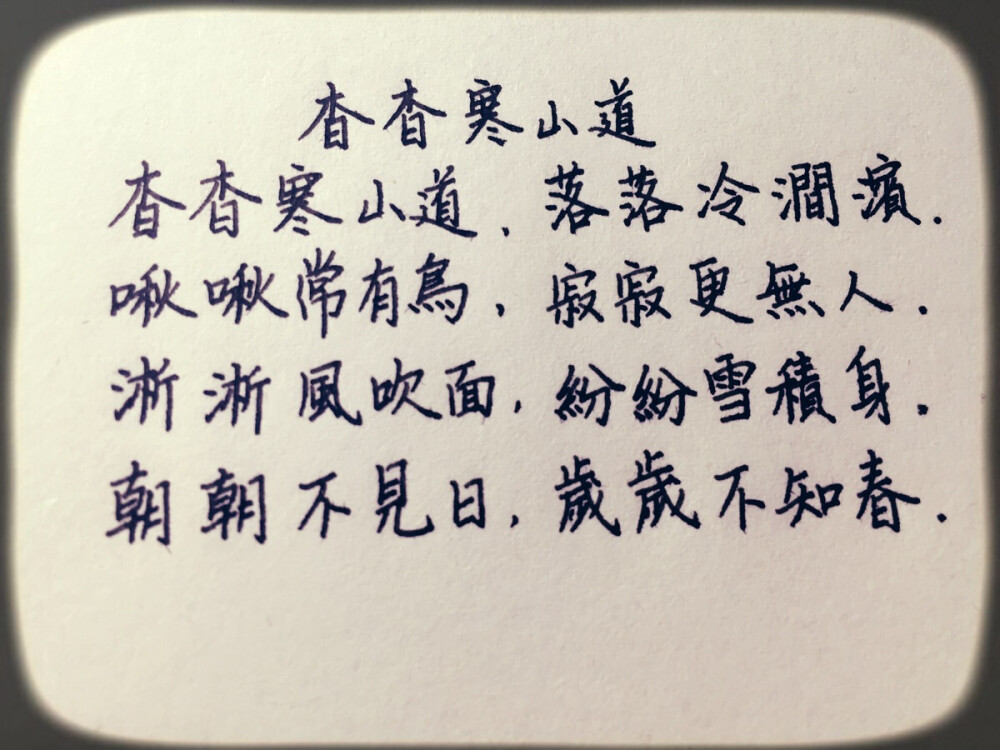 杳杳寒山道
杳杳寒山道，落落冷澗濱.
啾啾常有鳥，寂寂更無人.
淅淅風吹面，紛紛雪積身.
朝朝不見日，歲歲不知春.